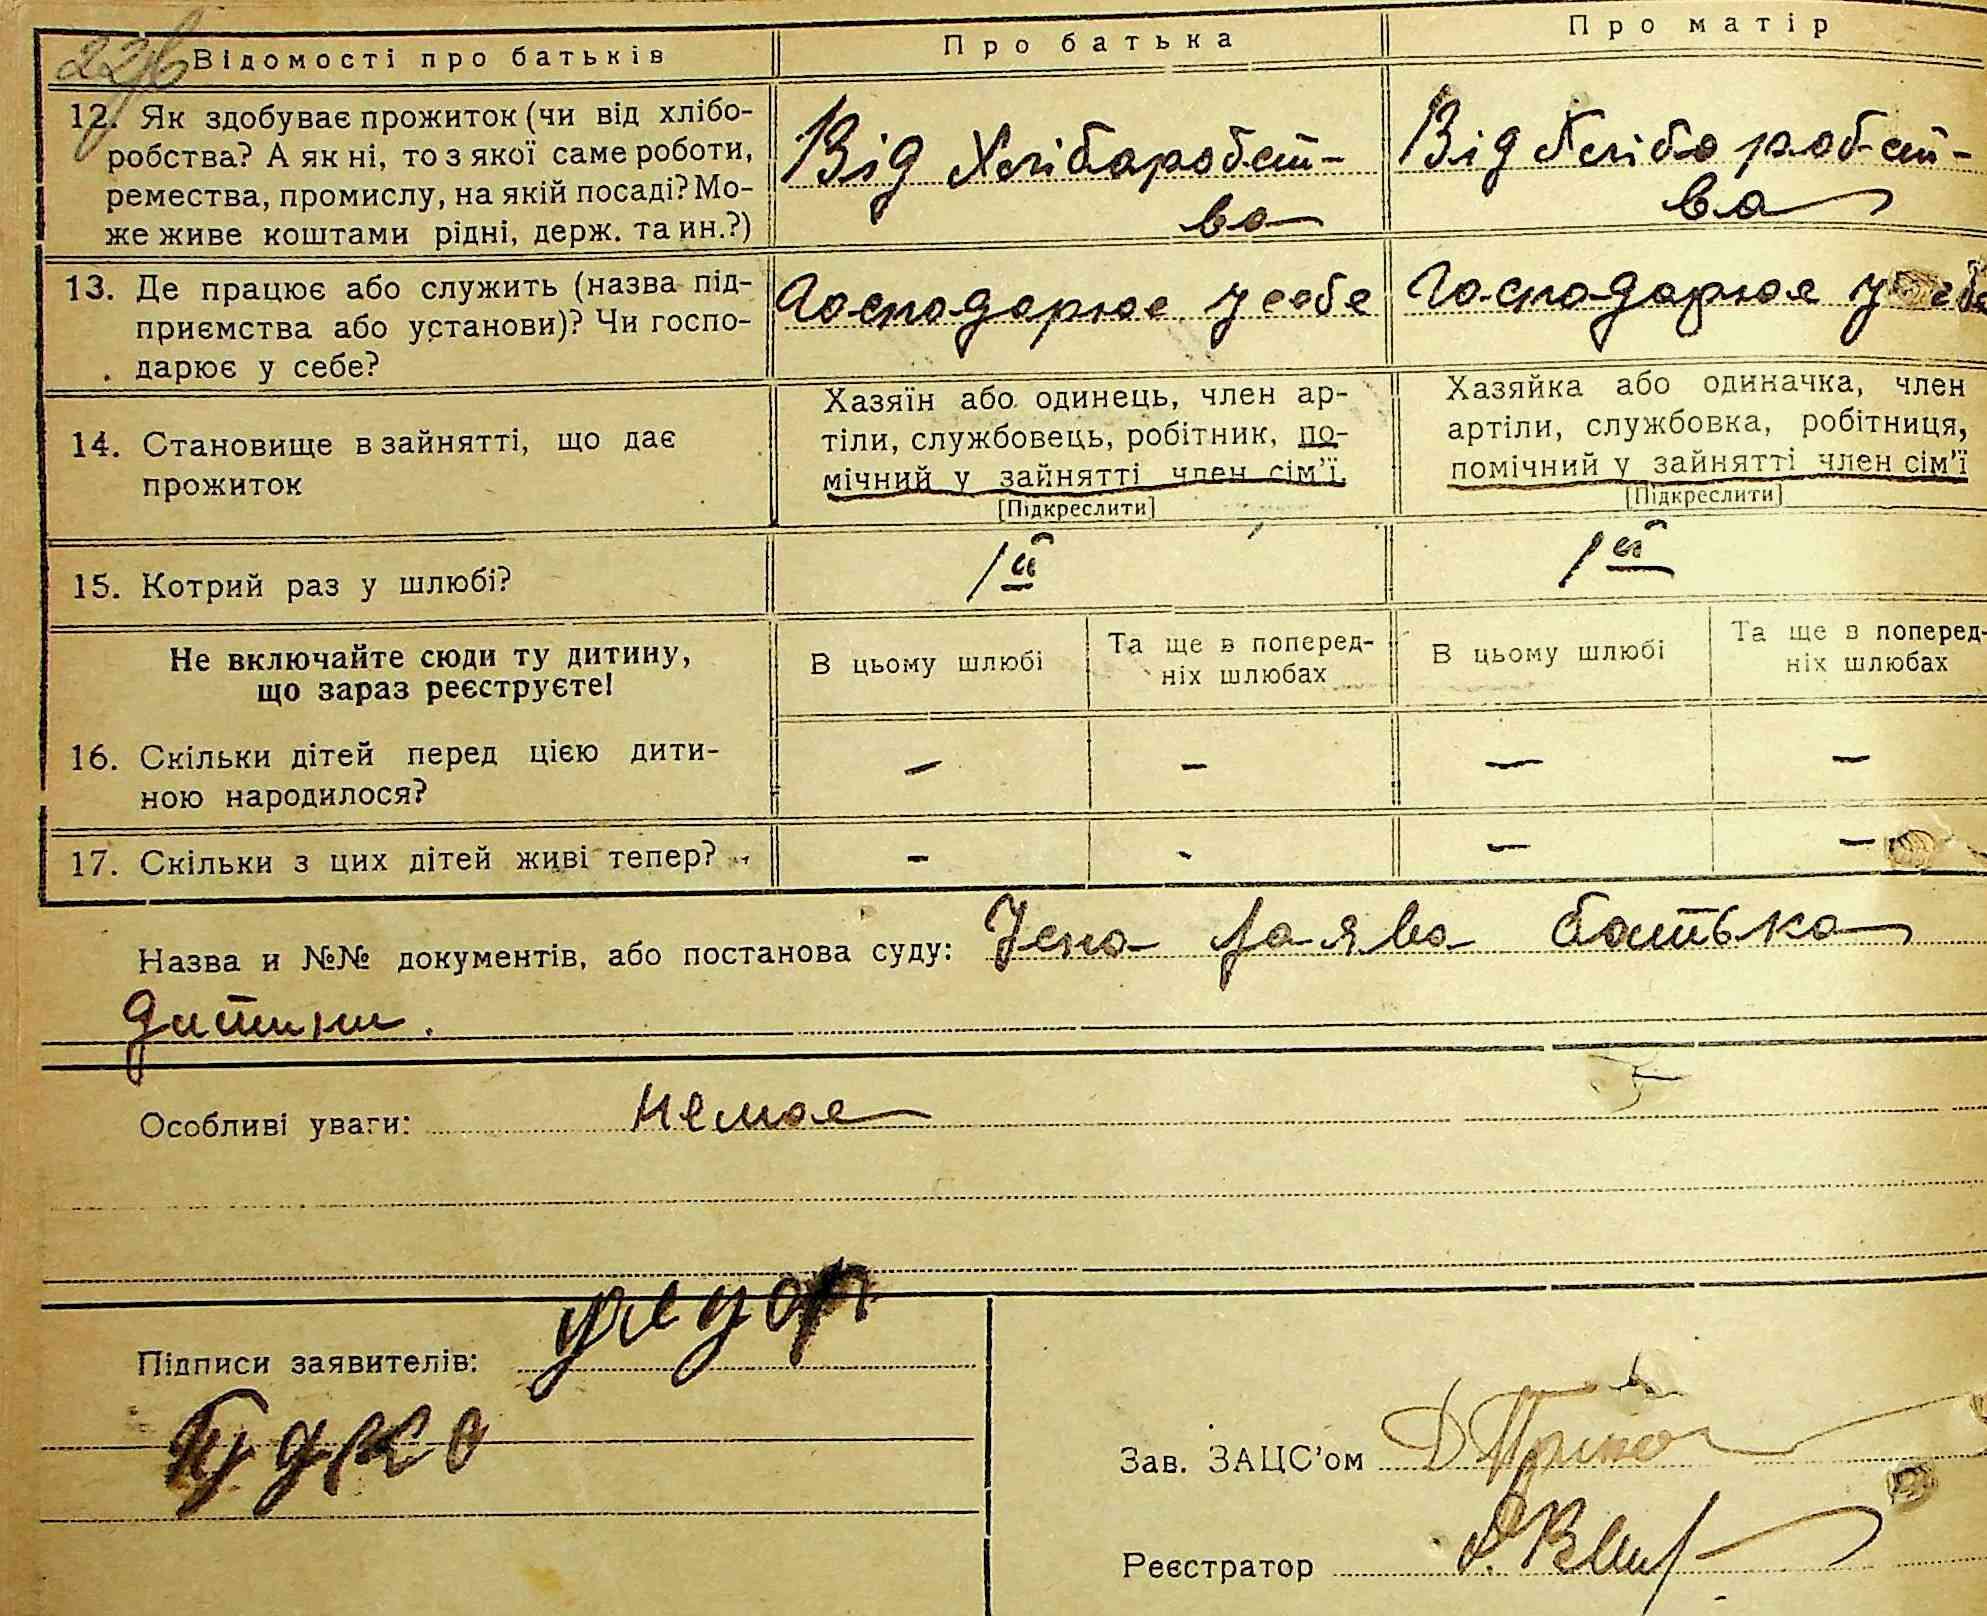 22
Відомості про батьків
Про батька
Про матір
12. Як здобуває прожиток (чи від хлібо-
робства? А як ні, то з якої саме роботи,
ремества, промислу, на якій посаді? Мо-
же живе коштами рідні, держ. та ин.?)
Від Хлібаробст-
ва
Від Хлібо робст-
ва
13. Де працює або служить (назва під-
приємства або установи)? Чи госпо-
дарює у себе?
Господарює у себе
Господарює у себе
14. Становище в зайнятті, що дає
прожиток
Хазяїн або одинець, член ар-
тіли, службовець, робітник, по-
мічний у зайнятті член сім'ї.
[Підкреслити]
Хазяйка або одиначка, член
артіли, службовка, робітниця,
помічний у зайнятті член сім'ї
[Підкреслити]
15. Котрий раз у шлюбі?
1й
1й
Не включайте сюди ту дитину,
що зараз реєструєте!
В цьому шлюбі
Та ще в поперед-
ніх шлюбах
В цьому шлюбі
Та ще в поперед-
ніх шлюбах
16. Скільки дітей перед цією дити-
ною народилося?
– – – –
17. Скільки з цих дітей живі тепер?
- - – –
Назва и №№ документів, або постанова суду: Усна заява батька
дитини.
Особливі уваги: немає
Підписи заявителів:
Зав. ЗАЦС'ом
Реєстратор